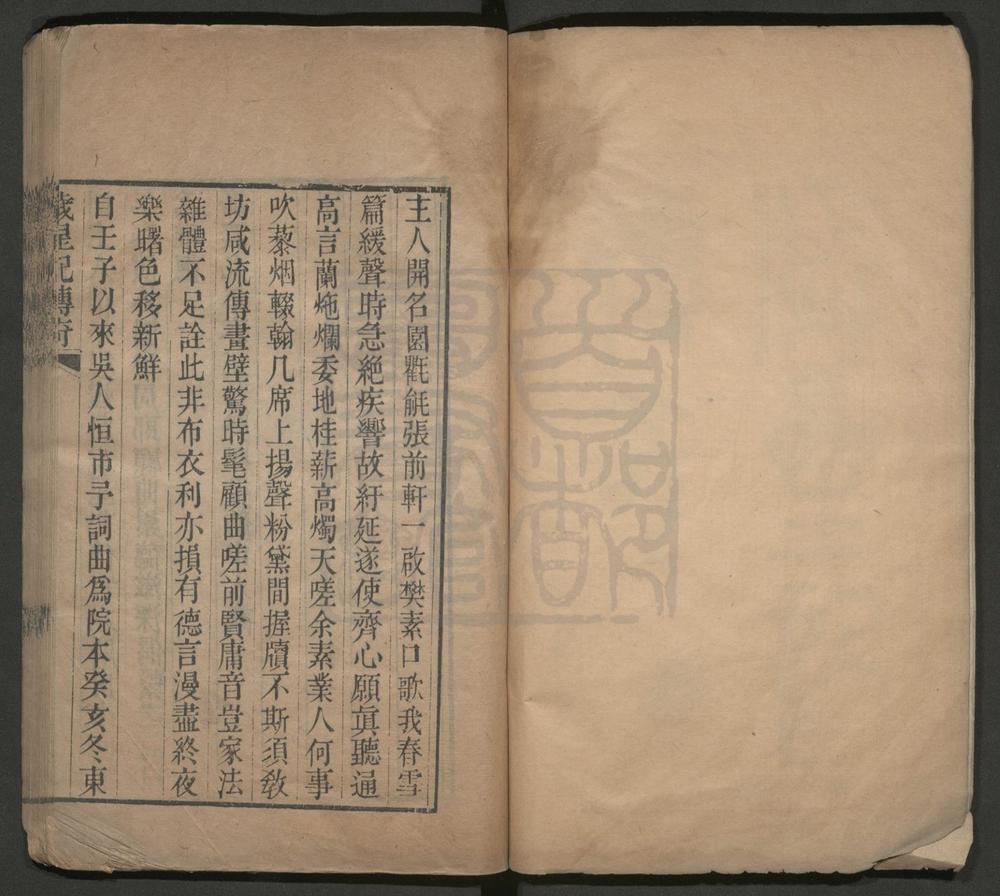 主人開名園氍毹張前軒一啟樊素口歌我春雪
篇緩聲時急絶疾響故紆延遂使齊心願眞聽通
高言蘭炧爛委地桂薪高燭天嗟余素業人何事
吹藜烟輟翰几席上揚聲粉黛間握牘不斯須敎
坊咸流傳畫壁驚時髦顧曲嗟前賢庸音豈家法
雜體不足詮此非布衣利亦損有德言漫盡終夜
樂曙色移新鮮
自壬子以來吳人恒市予詞曲爲院本癸亥冬東
歲星記傳奇